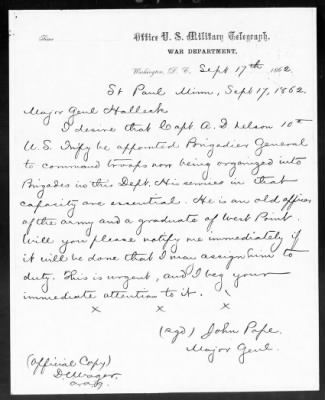 Time
Office U. S. Military Telegraph,
WAR DEPARTMENT,
Washington, D. C. Sept 17th 1862.
St Paul Minn, Sept 17, 1862.
Major Genl Halleck
I desire that Capt A. D Nelson 10th
U.S. Infy be appointed Brigadier General
to command troops now being organized into
Brigades in this Dept. His services in that
capacity are essential. He is an old officer
of the army and a graduate of West Point.
Will you please notify me immediately if
it will be done that I may assign him to
duty. This is urgent, and I beg your
immediate attention to it.
x x x
(sgd) John Pope.
Major Genl.
(Official Copy)